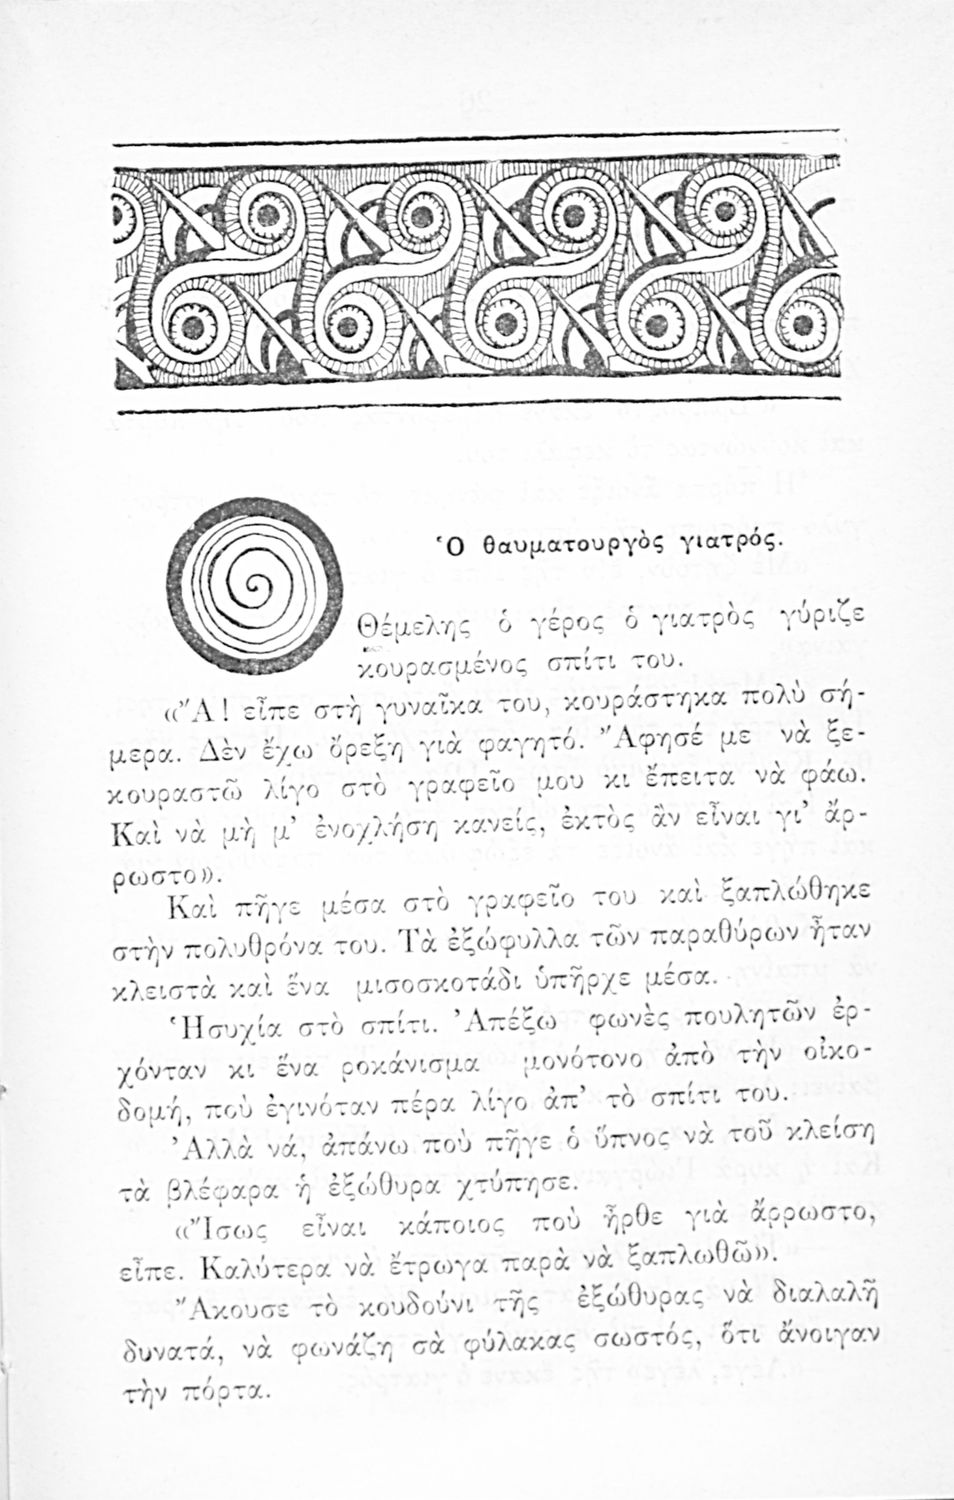 Ὁ θαυματουργὸς γιατρός.
Θέμελης ὁ γέρος ὁ γιατρὸς γύριζε
κουρασμένος σπίτι του.
«Ἄ! εἶπε στὴ γυναῖκα του, κουράστηκα πολὺ σή-
μερα. Δὲν ἔχω ὄρεξη γιὰ φαγητό. Ἄφησέ με νὰ ξε-
κουραστῶ λίγο στὸ γραφεῖο μου κι ἔπειτα νὰ φάω.
Καὶ νὰ μὴ μ’ ἐνοχλήση κανείς, ἐκτὸς ἂν εἶναι γι’ ἄρ-
ρωστο».
Καὶ πῆγε μέσα στὸ γραφεῖο του καὶ ξαπλώθηκε
στὴν πολυθρόνα του. Τὰ ἐξώφυλλα τῶν παραθύρων ἦταν
κλειστὰ καὶ ἕνα μισοσκοτάδι ὑπῆρχε μέσα.
Ἡσυχία στὸ σπίτι. Ἀπέξω φωνὲς πουλητῶν ἐρ-
χόνταν κι ἕνα ροκάνισμα μονότονο ἀπὸ τὴν οἰκο-
δομή, ποὺ ἐγινόταν πέρα λίγο ἀπ’ τὸ σπίτι του.
Ἀλλὰ νά, ἀπάνω ποὺ πῆγε ὁ ὕπνος νὰ τοῦ κλείση
τὰ βλέφαρα ἡ ἐξώθυρα χτύπησε.
«Ἴσως εἶναι κάποιος ποὺ ἦρθε γιὰ ἄρρωστο,
εἶπε. Καλύτερα νὰ ἔτρωγα παρὰ νὰ ξαπλωθῶ».
Ἄκουσε τὸ κουδούνι τῆς ἐξώθυρας νὰ διαλαλῆ
δυνατά, νὰ φωνάζη σὰ φύλακας σωστός, ὅτι ἄνοιγαν
τὴν πόρτα.